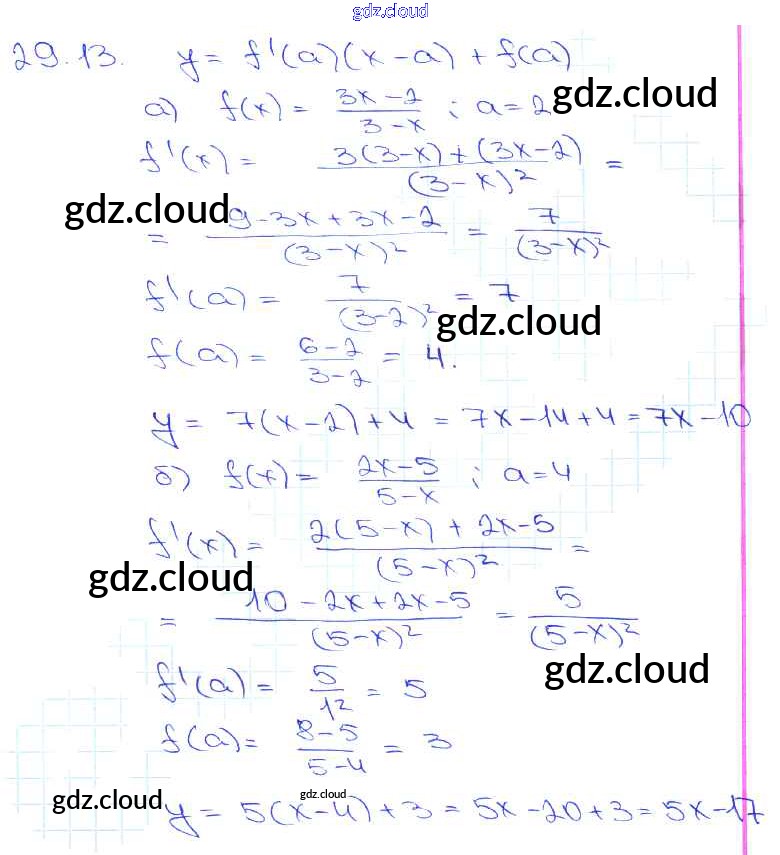 gdz.cloud
29.13. y = f'(a)(x-a) + f(a)
а) f(x) = (3x-2)/(3-x) ; a=2 gdz.cloud
f'(x) = (3(3-x)+(3x-2))/(3-x)² =
gdz.cloud
= (9-3x+3x-2)/(3-x)² = 7/(3-x)²
f'(a) = 7/(3-2)² = 7
gdz.cloud
f(a) = (6-2)/(3-2) = 4.
y = 7(x-2)+4 = 7x-14+4 = 7x-10
б) f(x) = (2x-5)/(5-x) ; a=4
f'(x) = (2(5-x)+2x-5)/(5-x)² =
gdz.cloud
= (10-2x+2x-5)/(5-x)² = 5/(5-x)²
gdz.cloud
f'(a) = 5/1² = 5
f(a) = (8-5)/(5-4) = 3
gdz.cloud gdz.cloud
y = 5(x-4)+3 = 5x-20+3 = 5x-17